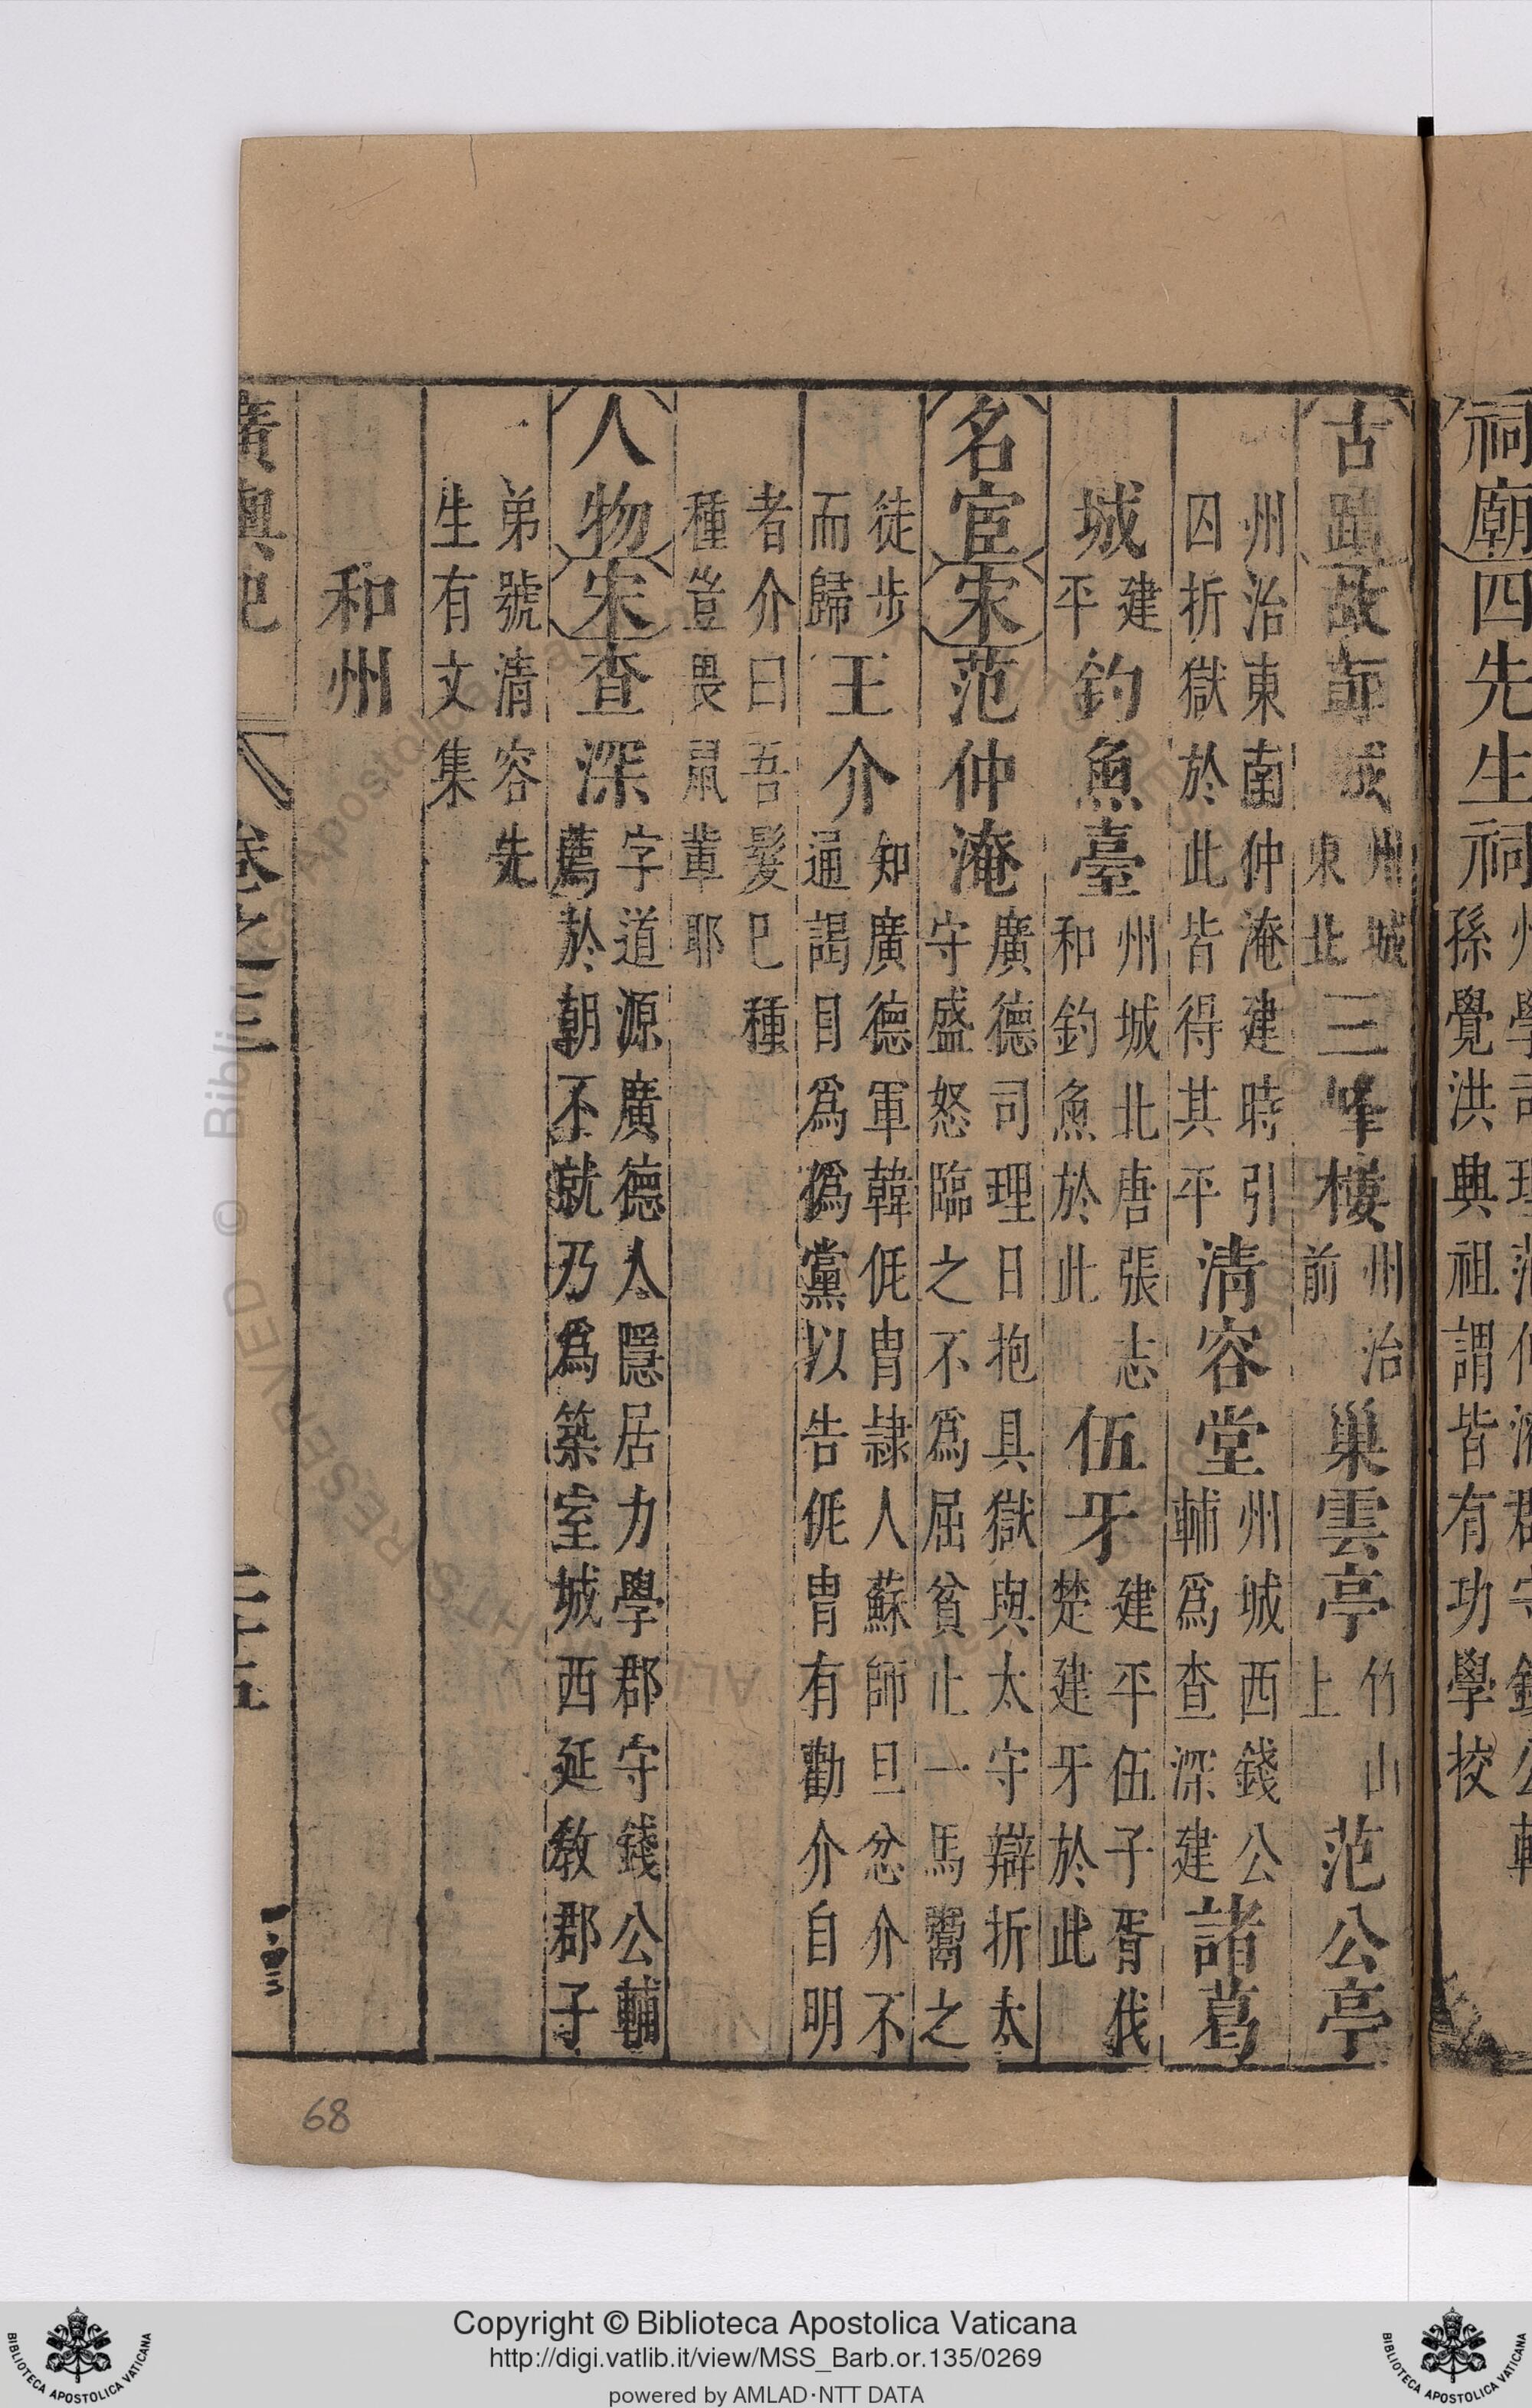 祠廟四先生祠孫覺洪興祖謂皆有功學校
古蹟故鄣城州城東北三峰樓州治前巢雲亭竹山上范公亭
州治東南仲淹建時引囚折獄於此皆得其平清容堂州城西錢公輔爲查深建諸葛
城建平釣魚臺州城北唐張志和釣魚於此伍牙建平伍子胥伐楚建牙於此
名宦宋范仲淹廣德司理日抱具獄與太守辯折太守盛怒臨之不爲屈貧止一馬鬻之
徒步而歸王介知廣德軍韓侂冑隷人蘇師旦忿介不通謁目爲僞黨以告侂冑有勸介自明
者介曰吾髮已種種豈畏鼠輩耶
人物宋查深字道源廣德人隱居力學郡守錢公輔薦於朝不就乃爲築室城西延教郡子
弟號清容先生有文集
和州
廣輿記 卷之三 二十五
68
© Biblioteca Apostolica Vaticana ALL RIGHTS RESERVED
Copyright © Biblioteca Apostolica Vaticana
http://digi.vatlib.it/view/MSS_Barb.or.135/0269
powered by AMLAD·NTT DATA
BIBLIOTECA APOSTOLICA VATICANA
BIBLIOTECA APOSTOLICA VATICANA